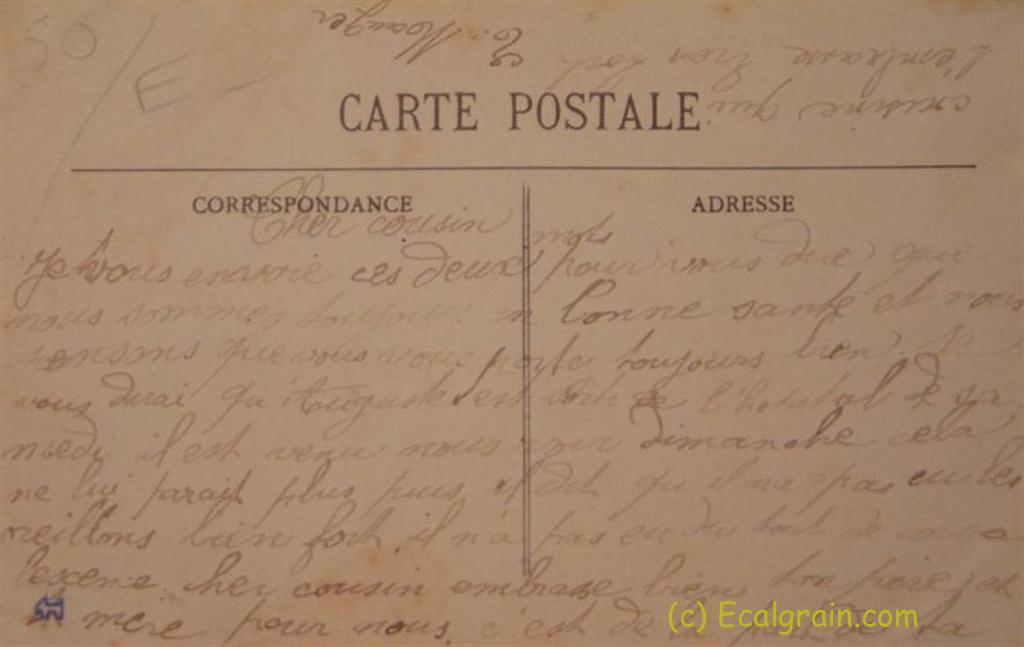 50
E
CARTE POSTALE
CORRESPONDANCE
ADRESSE
Cher cousin
Je vous envoie ces deux mots pour vous dire que
nous sommes toujours en bonne santé et nous
pensons que vous vous porte toujours bien, Je
vous dirai qu'Auguste est sorti de l'hopital de sa
medi il est venu nous voir dimanche cela
ne lui parait plus puis il dit qu'il n'a pas eu les
oreillons bien fort, il n'a pas eu du tout de conva
lescence. cher cousin embrasse bien ton père, et
ta mère pour nous. c'est de la part de ta
cousine qui
t'embrasse bien fort
E. Mauger
(c) Ecalgrain.com